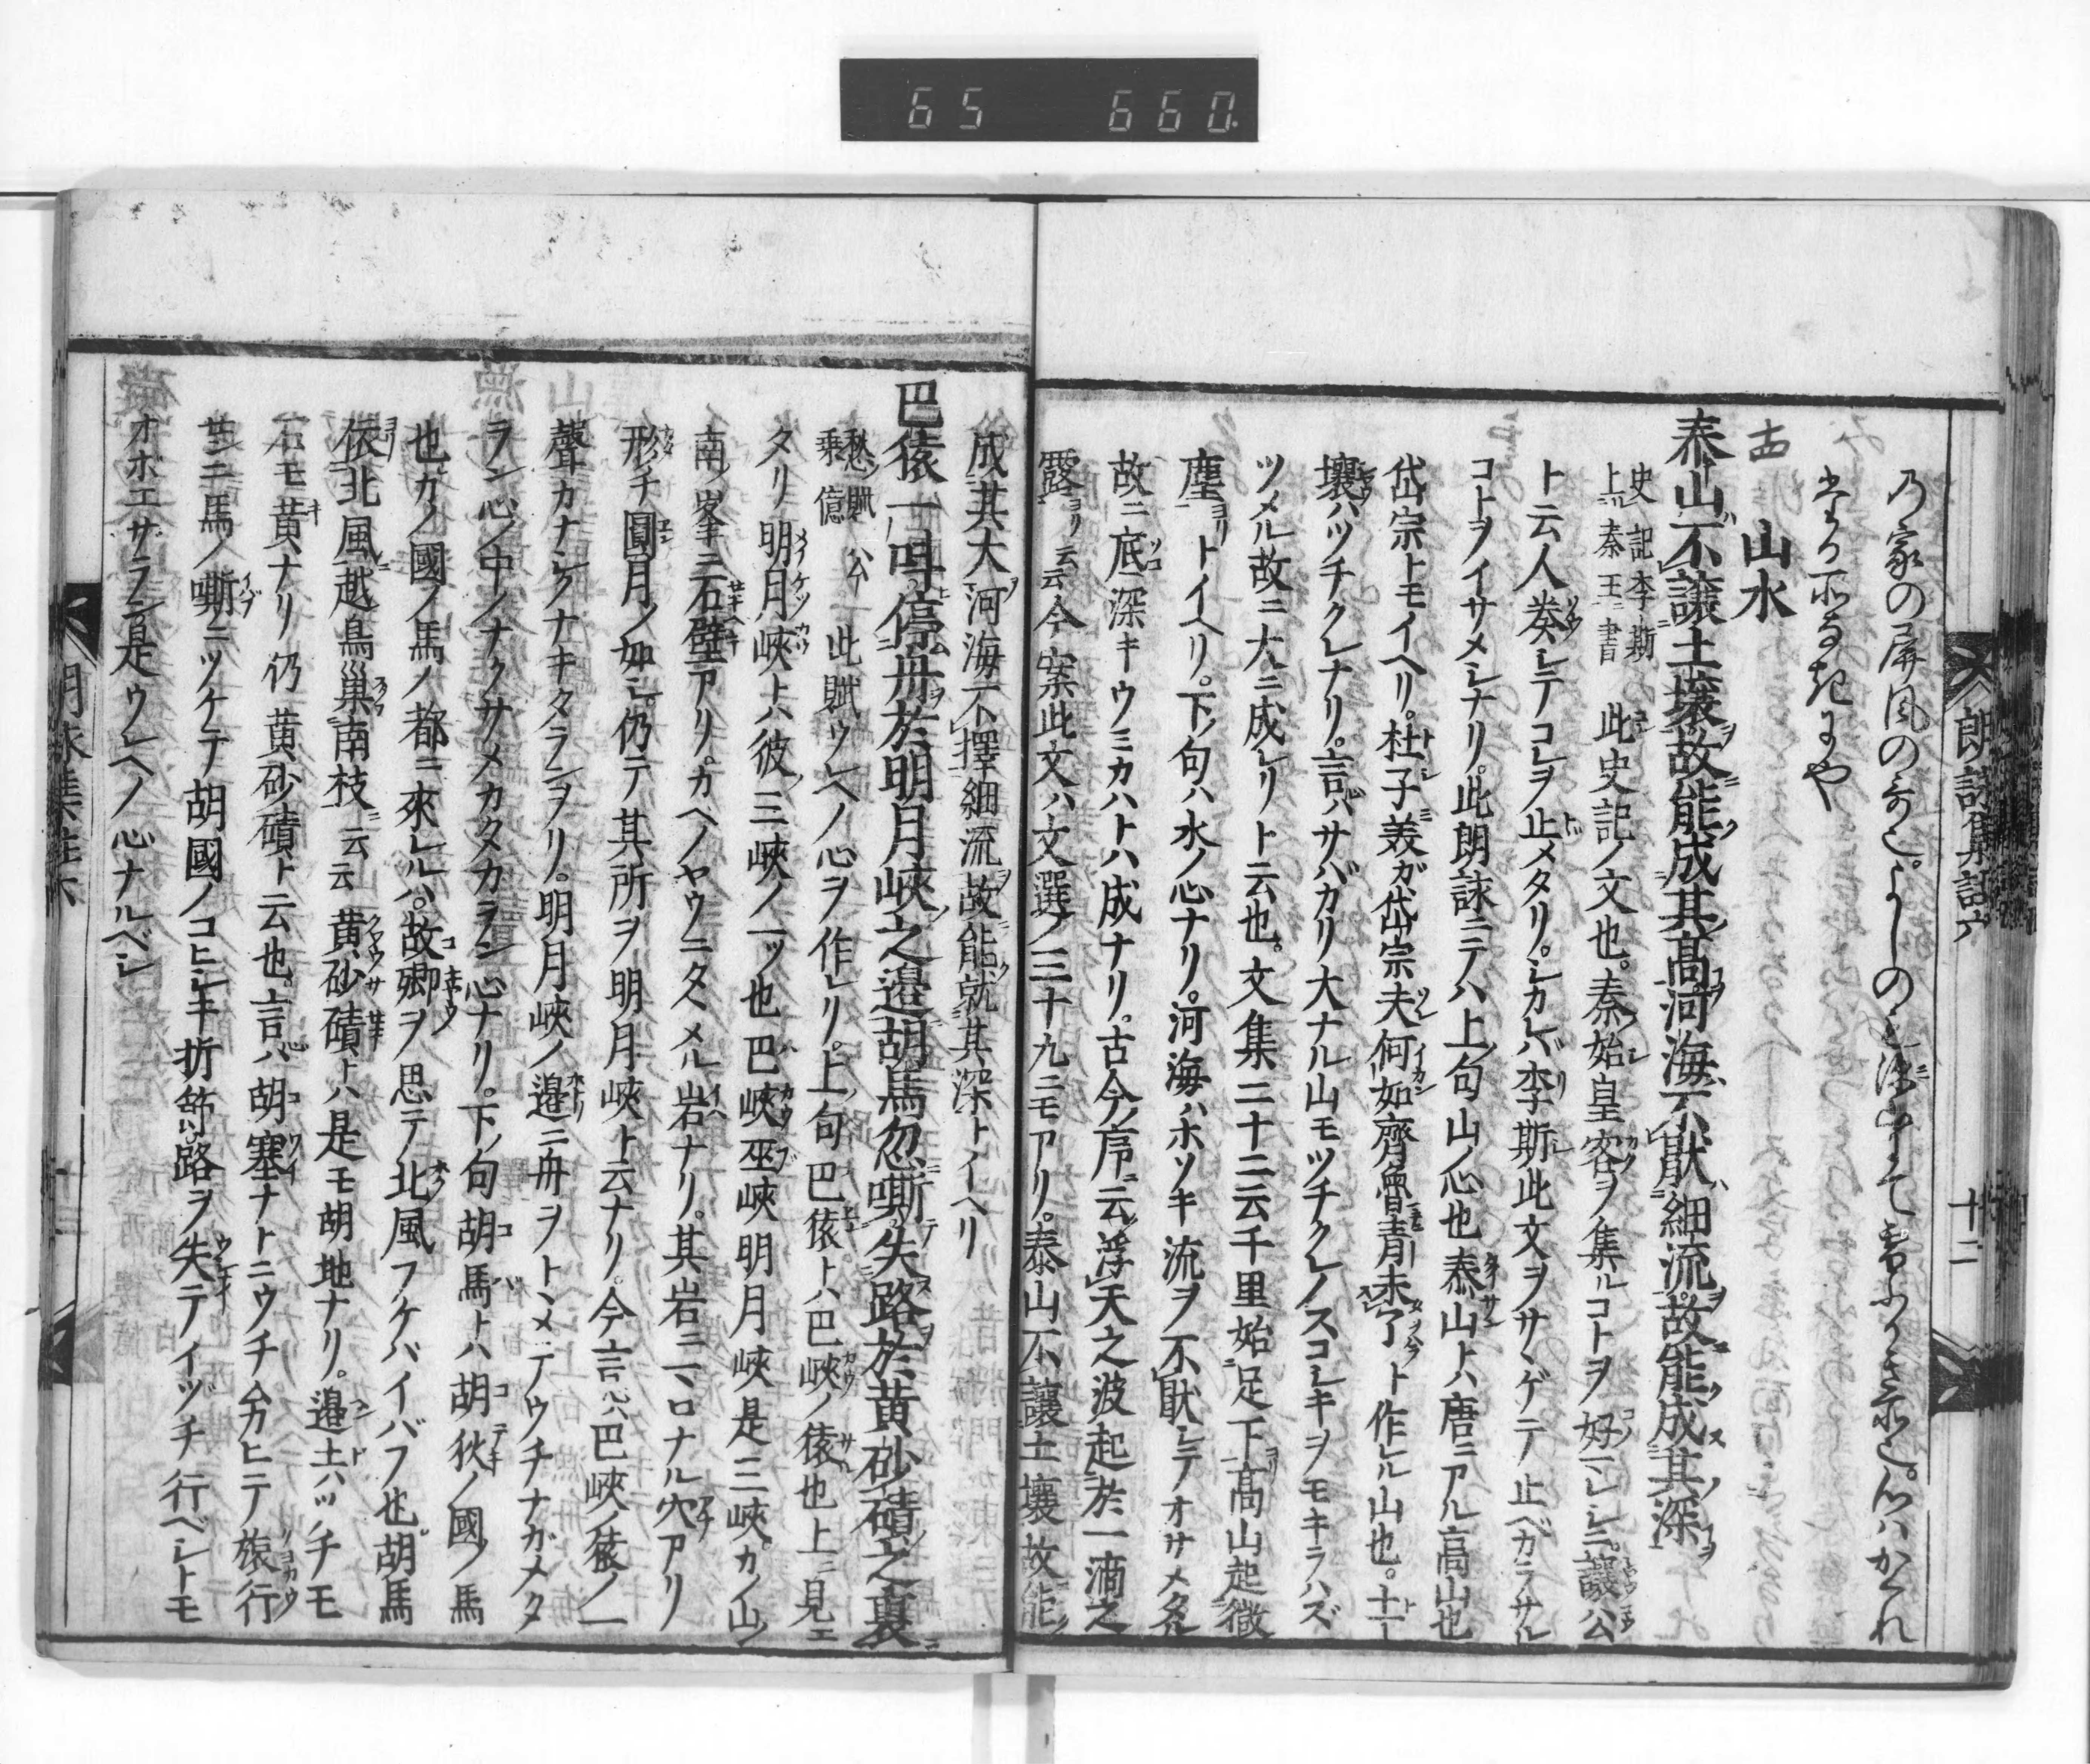 65 660
朗詠集註六 十二
乃家の屏風の哥也。よしの
山水
泰山不讓土壤故能成其高河海不猒細流故能成其深
史記李斯
上秦王書
此史記ノ文也。秦始皇客ヲ集ルコトヲ好マレシニ讓公
ト云人奏シテコレヲ止メタリ。シカレバ李斯此文ヲサヽゲテ止ベカラサル
コトヲイサメシナリ。此朗詠ニテハ上句山ノ心也泰山トハ唐ニアル高山也
岱宗トモイヘリ。杜子美ガ岱宗夫何如齊魯青未了ト作レル山也。土
壤ハツチクレナリ。言ハサバカリ大ナル山モツチクレノスコシキヲモキラハズ
ツメル故ニ大ニ成レリト云也。文集二十二云千里始足下高山起微
塵トイヘリ。下句ハ水ノ心ナリ。河海ハホソキ流ヲ不猒シテオサメタル
故ニ底深キウミカハトハ成ナリ。古今序云浮天之波起於一滴之
露云云今案此文ハ文選ノ三十九ニモアリ。泰山不讓土壤故能
成其大河海不擇細流故能就其深トイヘリ
巴猿一叫停舟於明月峽之邉胡馬忽嘶失路於黄砂磧之裏
愁賦 公乗億
此賦ウレヘノ心ヲ作レリ。上句巴猿トハ巴峽ノ猿也上ニ見エ
タリ明月峽トハ彼三峽ノ一ツ也巴峽巫峽明月峽是三峽カノ山ノ
南ノ峯ニ石壁アリ。カベノヤウニタヽメル岩ナリ。其岩ニマロナル穴アリ
形チ圓月ノ如シ。仍テ其所ヲ明月峽ト云ナリ。今言心ハ巴峽ノ猿ノ一
聲カナシクナキタランヲリ。明月峽ノ邉ニ舟ヲトヽメテウチナガメタ
ラン心ノ中ノナクサメカタカラン心ナリ。下句胡馬トハ胡狄ノ國ノ馬
也カノ國ノ馬ノ都ニ來レルハ。故郷ヲ思テ北風フケバイバフ也胡馬
依北風越鳥巣南枝云云黄砂磧トハ是モ胡地ナリ。邉土ハツチモ
石モ黄ナリ仍黄砂磧ト云也。言心ハ胡塞ナトニウチムカヒテ旅行
サニ馬ノ嘶ニツケテ胡國ノコヒシキ折節路ヲ失テイヅチ行ベシトモ
オボエザラン是ウレヘノ心ナルベシ